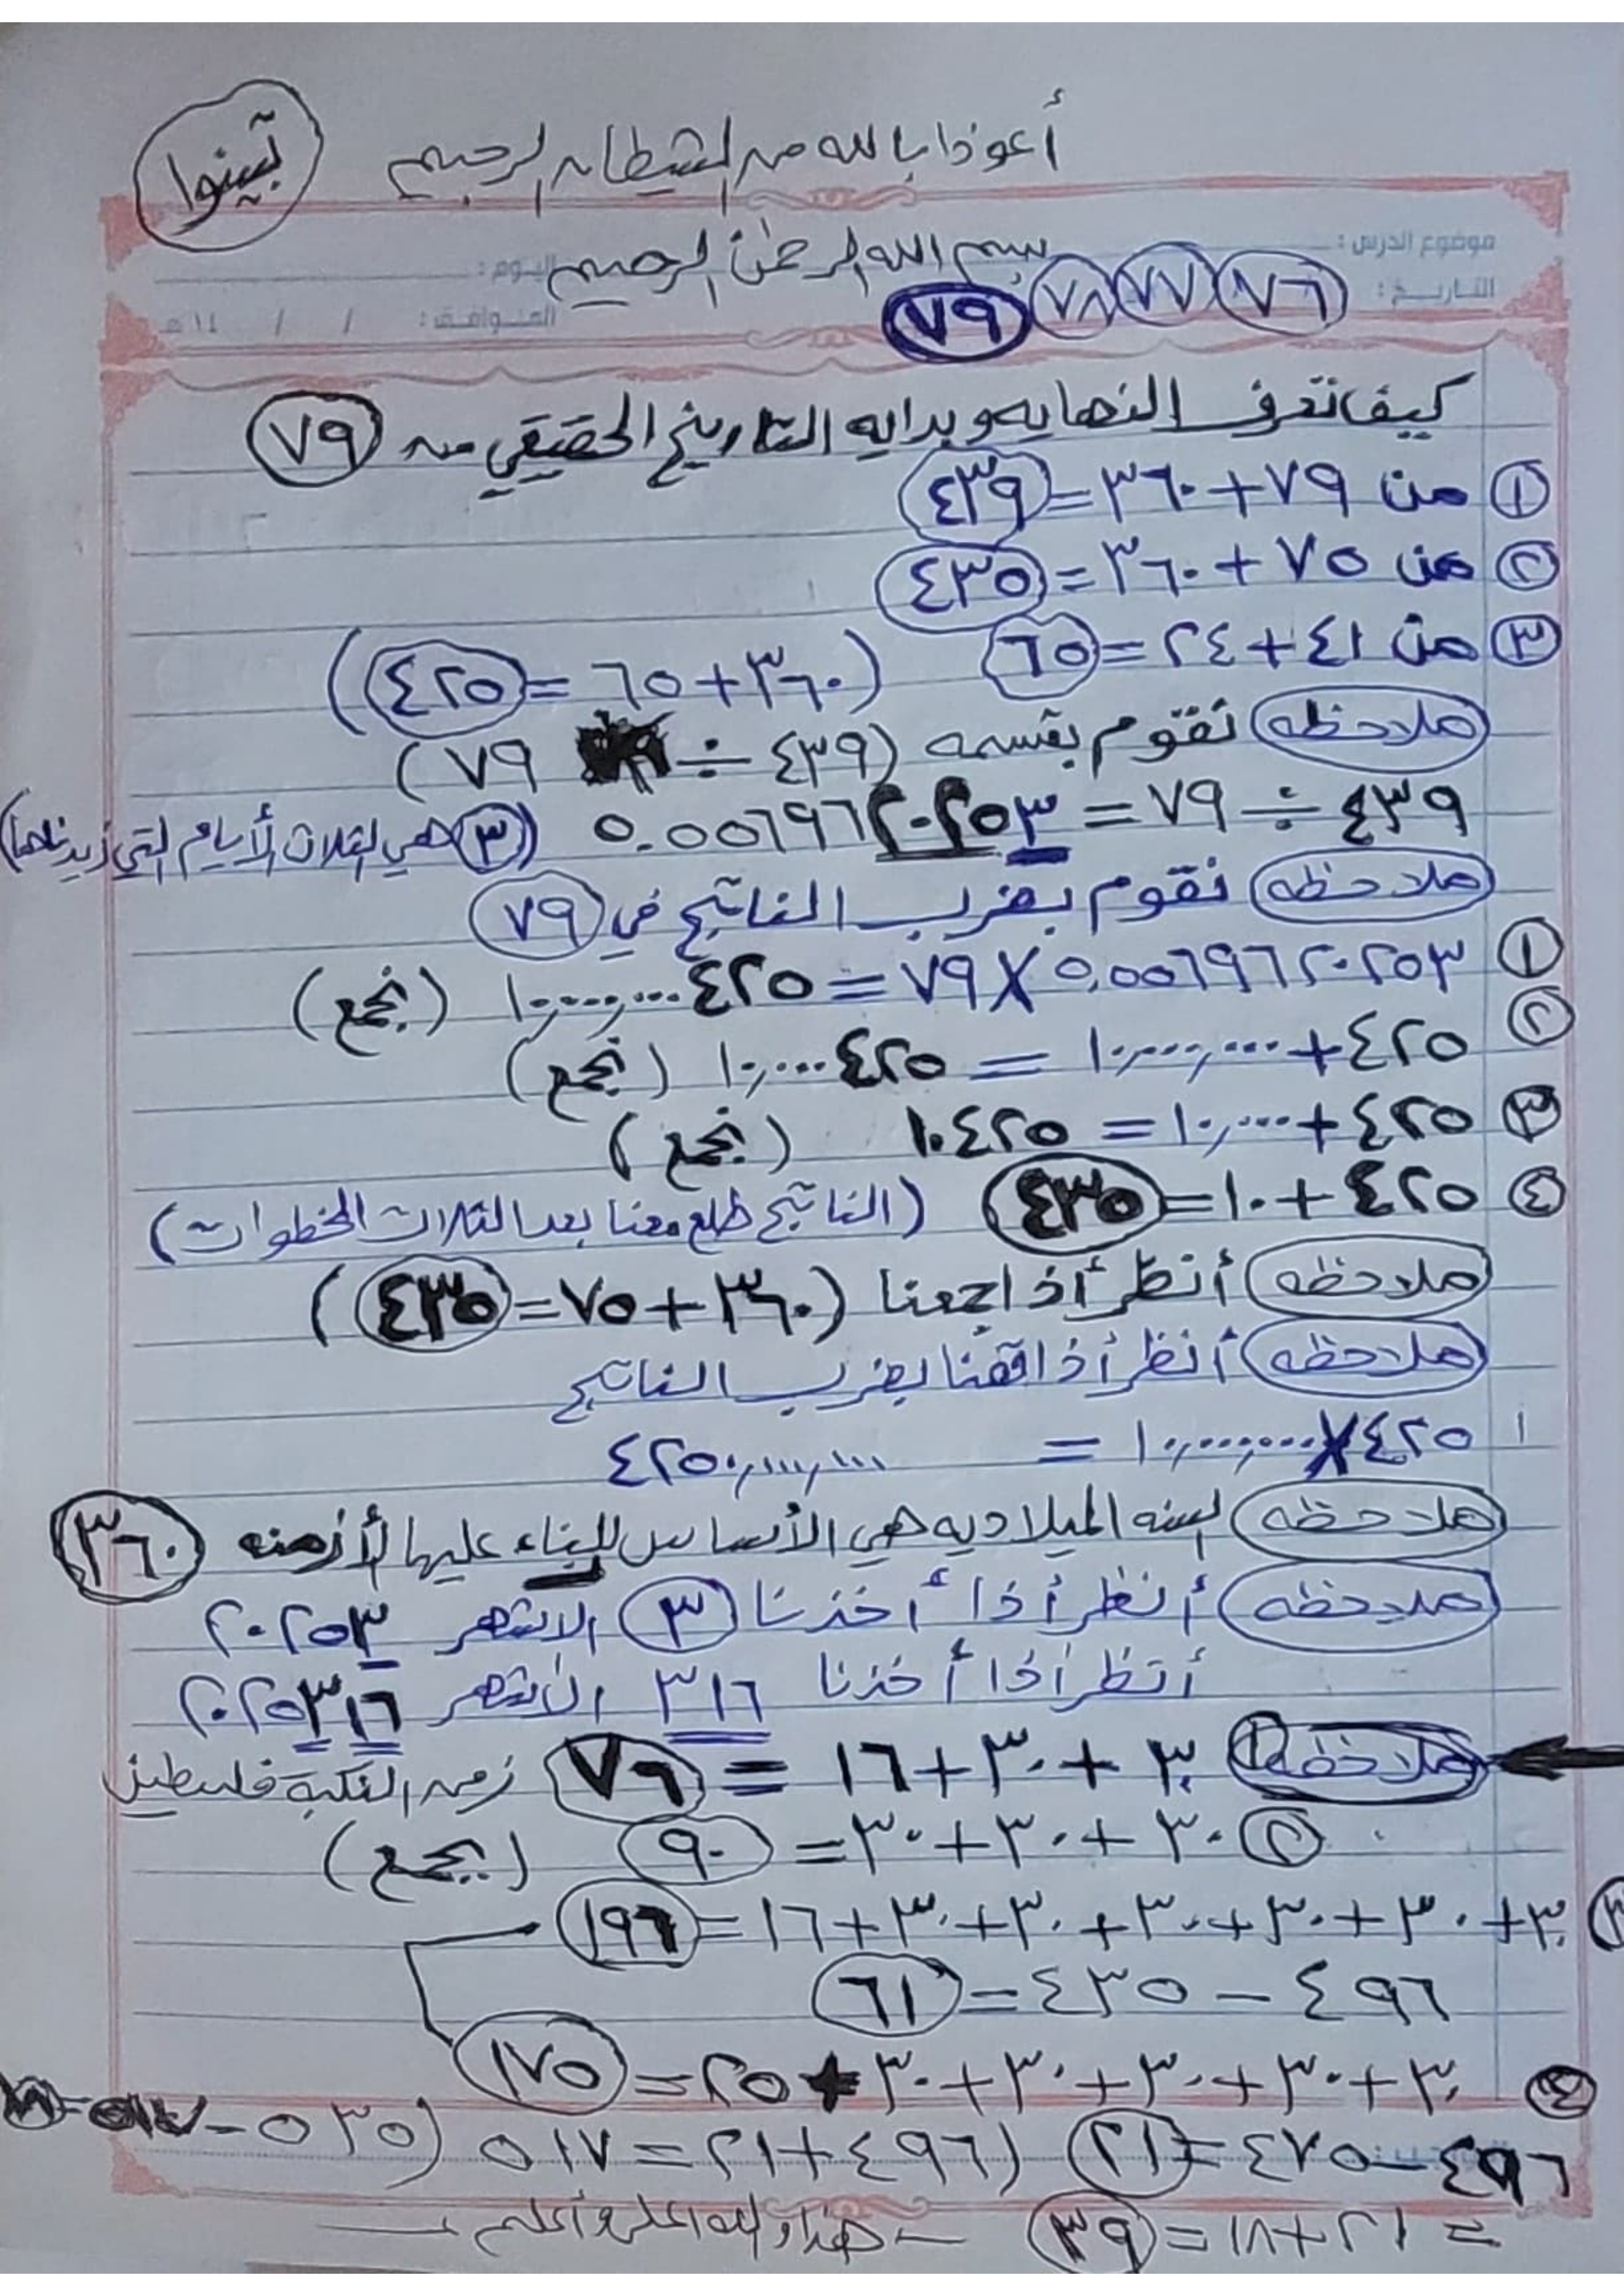 تبينوا
أعوذ بالله من الشيطان الرجيم
بسم الله الرحمن الرحيم
موضوع الدرس :
اليوم :
التاريخ :
٧٦ ٧٧ ٧٨ ٧٩
الموافق : / / ١٤ هـ
كيف نعرف النهايه وبدايه التاريخ الحقيقي من ٧٩
١ من ٧٩+٣٦٠=٤٣٩
٢ من ٧٥+٣٦٠=٤٣٥
٣ من ٤١+٢٤=٦٥ (٣٦٠+٦٥=٤٢٥)
ملاحظه نقوم بقسمه (٤٣٩ ÷ ٧٩)
٤٣٩ ÷ ٧٩ = ٥.٥٥٦٩٦٢٠٢٥٣ (٣ هي الثلاث الأيام التي زيدناها)
ملاحظه نقوم بضرب الناتج في ٧٩
١ ٥.٥٥٦٩٦٢٠٢٥٣ X ٧٩=٤٢٥ ١٠,٠٠٠,٠٠٠ (نجمع)
٢ ٤٢٥+١٠,٠٠٠,٠٠٠ = ٤٢٥ ١٠,٠٠٠ (نجمع)
٣ ٤٢٥+١٠,٠٠٠ = ١٠٤٢٥ (نجمع)
٤ ٤٢٥+١٠=٤٣٥ (الناتج طلع معنا بعد الثلاث الخطوات)
ملاحظه أنظر أذا جمعنا (٣٦٠+٧٥=٤٣٥)
ملاحظه أنظر أذا قمنا بضرب الناتج
١ ٤٢٥X١٠,٠٠٠,٠٠٠ = ٤٢٥٠,٠٠٠,٠٠٠
ملاحظه السنه الميلاديه هي الأساس للبناء عليها لأزمنه ٣٦٠
ملاحظه أنظر أذا أخذنا ٣ الاشهر ٢٠٢٥٣
أنظر أذا أخذنا ٣١٦ الأشهر ٢٠٢٥٣١٦
ملاحظه ١ ٣٠+٣٠+١٦ = ٧٦ زمن النكبة فلسطين
٢ ٣٠+٣٠+٣٠=٩٠ (نجمع)
٣ ٣٠+٣٠+٣٠+٣٠+٣٠+٣٠+١٦=١٩٦
٤٩٦ – ٤٣٥=٦١
٤ ٣٠+٣٠+٣٠+٣٠+٣٠+٢٥=١٧٥
٤٩٦–٤٧٥=٢١ (٤٩٦+٢١=٥١٧ (٥٣٥–
= ٢١+١٨=٣٩ – هذا والله اعلى وأعلم –